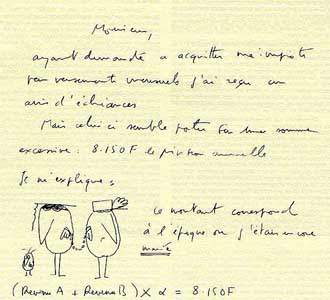 Monsieur,
ayant demandé a acquitter mes impots
par versements mensuels j'ai reçu un
avis d'échéances
Mais celui ci semble porter sur une somme
excessive : 8.150F de pension annuelle
Je m'explique :
Ce montant correspond
à l'époque ou j'étais encore
marié
(Revenu A + Revenu B) X α = 8.150F